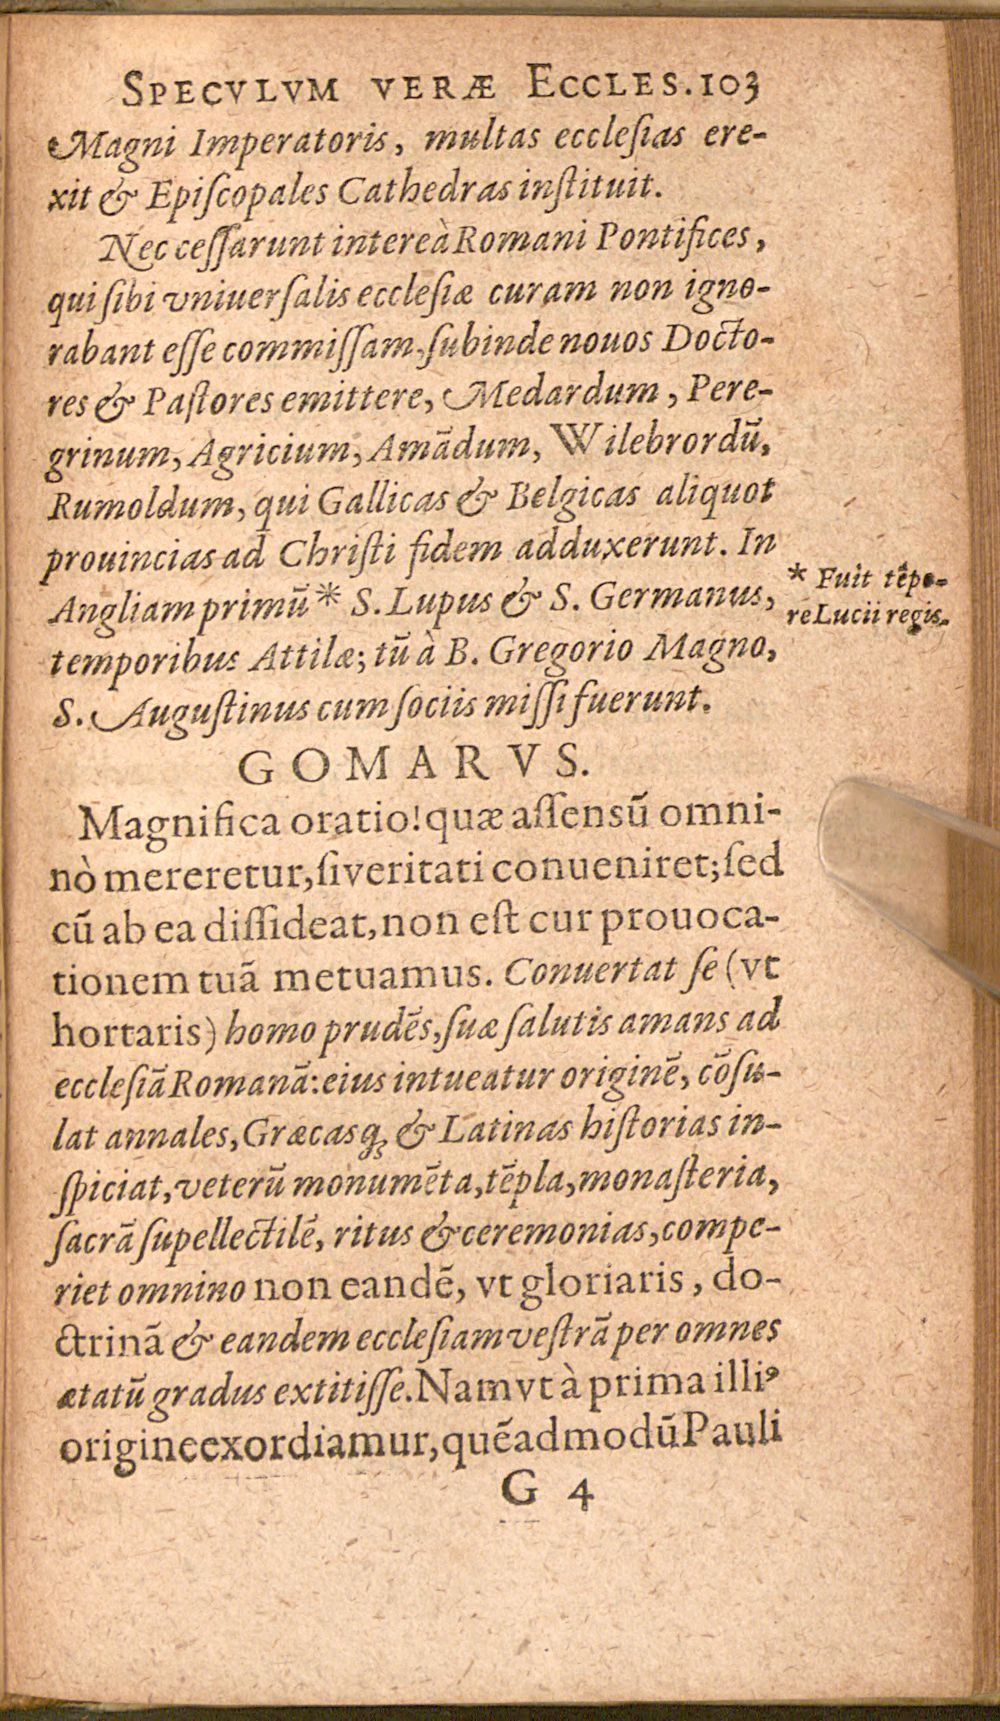 SPECVLVM VERÆ ECCLES. 103
Magni Imperatoris, multas eccleſias ere-
xit & Epiſcopales Cathedras inſtituit.
Nec ceſſarunt intereà Romani Pontifices,
qui ſibi vniuerſalis eccleſiæ curam non igno-
rabant eſſe commiſſam, ſubinde nouos Docto-
res & Paſtores emittere, Medardum, Pere-
grinum, Agricium, Amãdum, Wilebrordũ,
Rumoldum, qui Gallicas & Belgicas aliquot
prouincias ad Chriſti fidem adduxerunt. In
Angliam primũ * S. Lupus & S. Germanus,
temporibus Attilæ; tũ à B. Gregorio Magno,
S. Auguſtinus cum ſociis miſſi fuerunt.
* Fuit tẽpo-
re Lucii regis.
GOMARVS.
Magnifica oratio! quæ aſſensũ omni-
nò mereretur, ſi veritati conueniret; ſed
cũ ab ea diſſideat, non eſt cur prouoca-
tionem tuã metuamus. Conuertat ſe (vt
hortaris) homo prudẽs, ſuæ ſalutis amans ad
eccleſiã Romanã: eius intueatur originẽ, cõſu-
lat annales, Græcasq; & Latinas hiſtorias in-
ſpiciat, veterũ monumẽta, tẽpla, monaſteria,
ſacrã ſupellectilẽ, ritus & ceremonias, compe-
riet omnino non eandẽ, vt gloriaris, do-
ctrinã & eandem eccleſiam veſtrã per omnes
ætatũ gradus extitiſſe. Nam vt à prima illiꝰ
origine exordiamur, quẽadmodũ Pauli
G 4